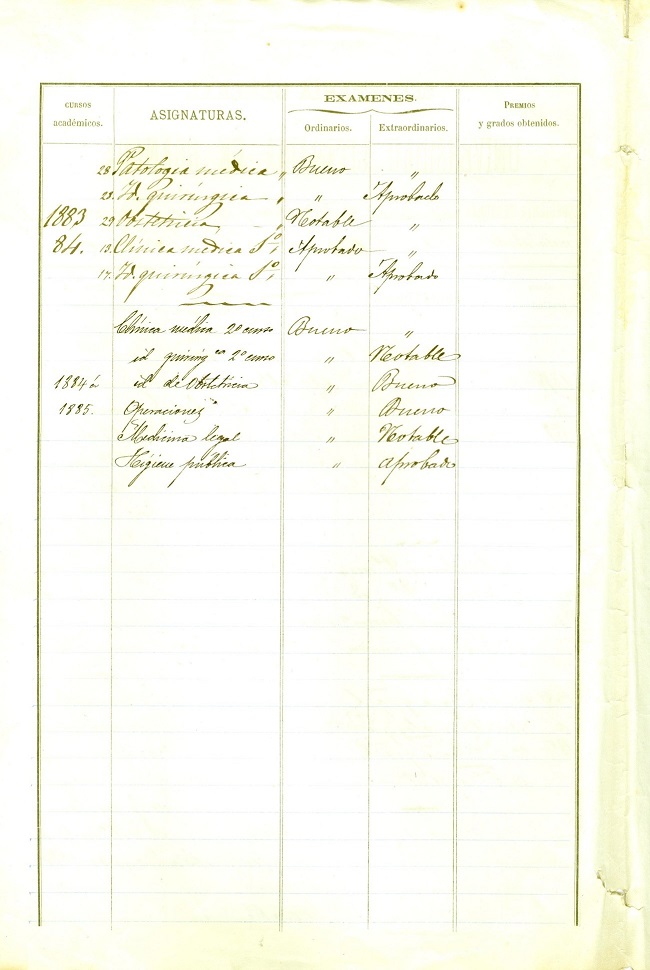 EXAMENES.
CURSOS académicos. ASIGNATURAS. Ordinarios. Extraordinarios. PREMIOS y grados obtenidos.
28 Patologia médica " Bueno "
23. Id. quirúrgica " " Aprobado
1883 29 Obstetricia " Notable "
84. 13. Clínica médica 1º, Aprobado "
17. Id. quirúrgica 1º, " Aprobado
Clínica médica 2º curso Bueno "
id quirúrgca 2º curso " Notable
1884 á id de Obstetricia " Bueno
1885. Operaciones " Bueno
Medicina legal " Notable
Higiene pública " Aprobado